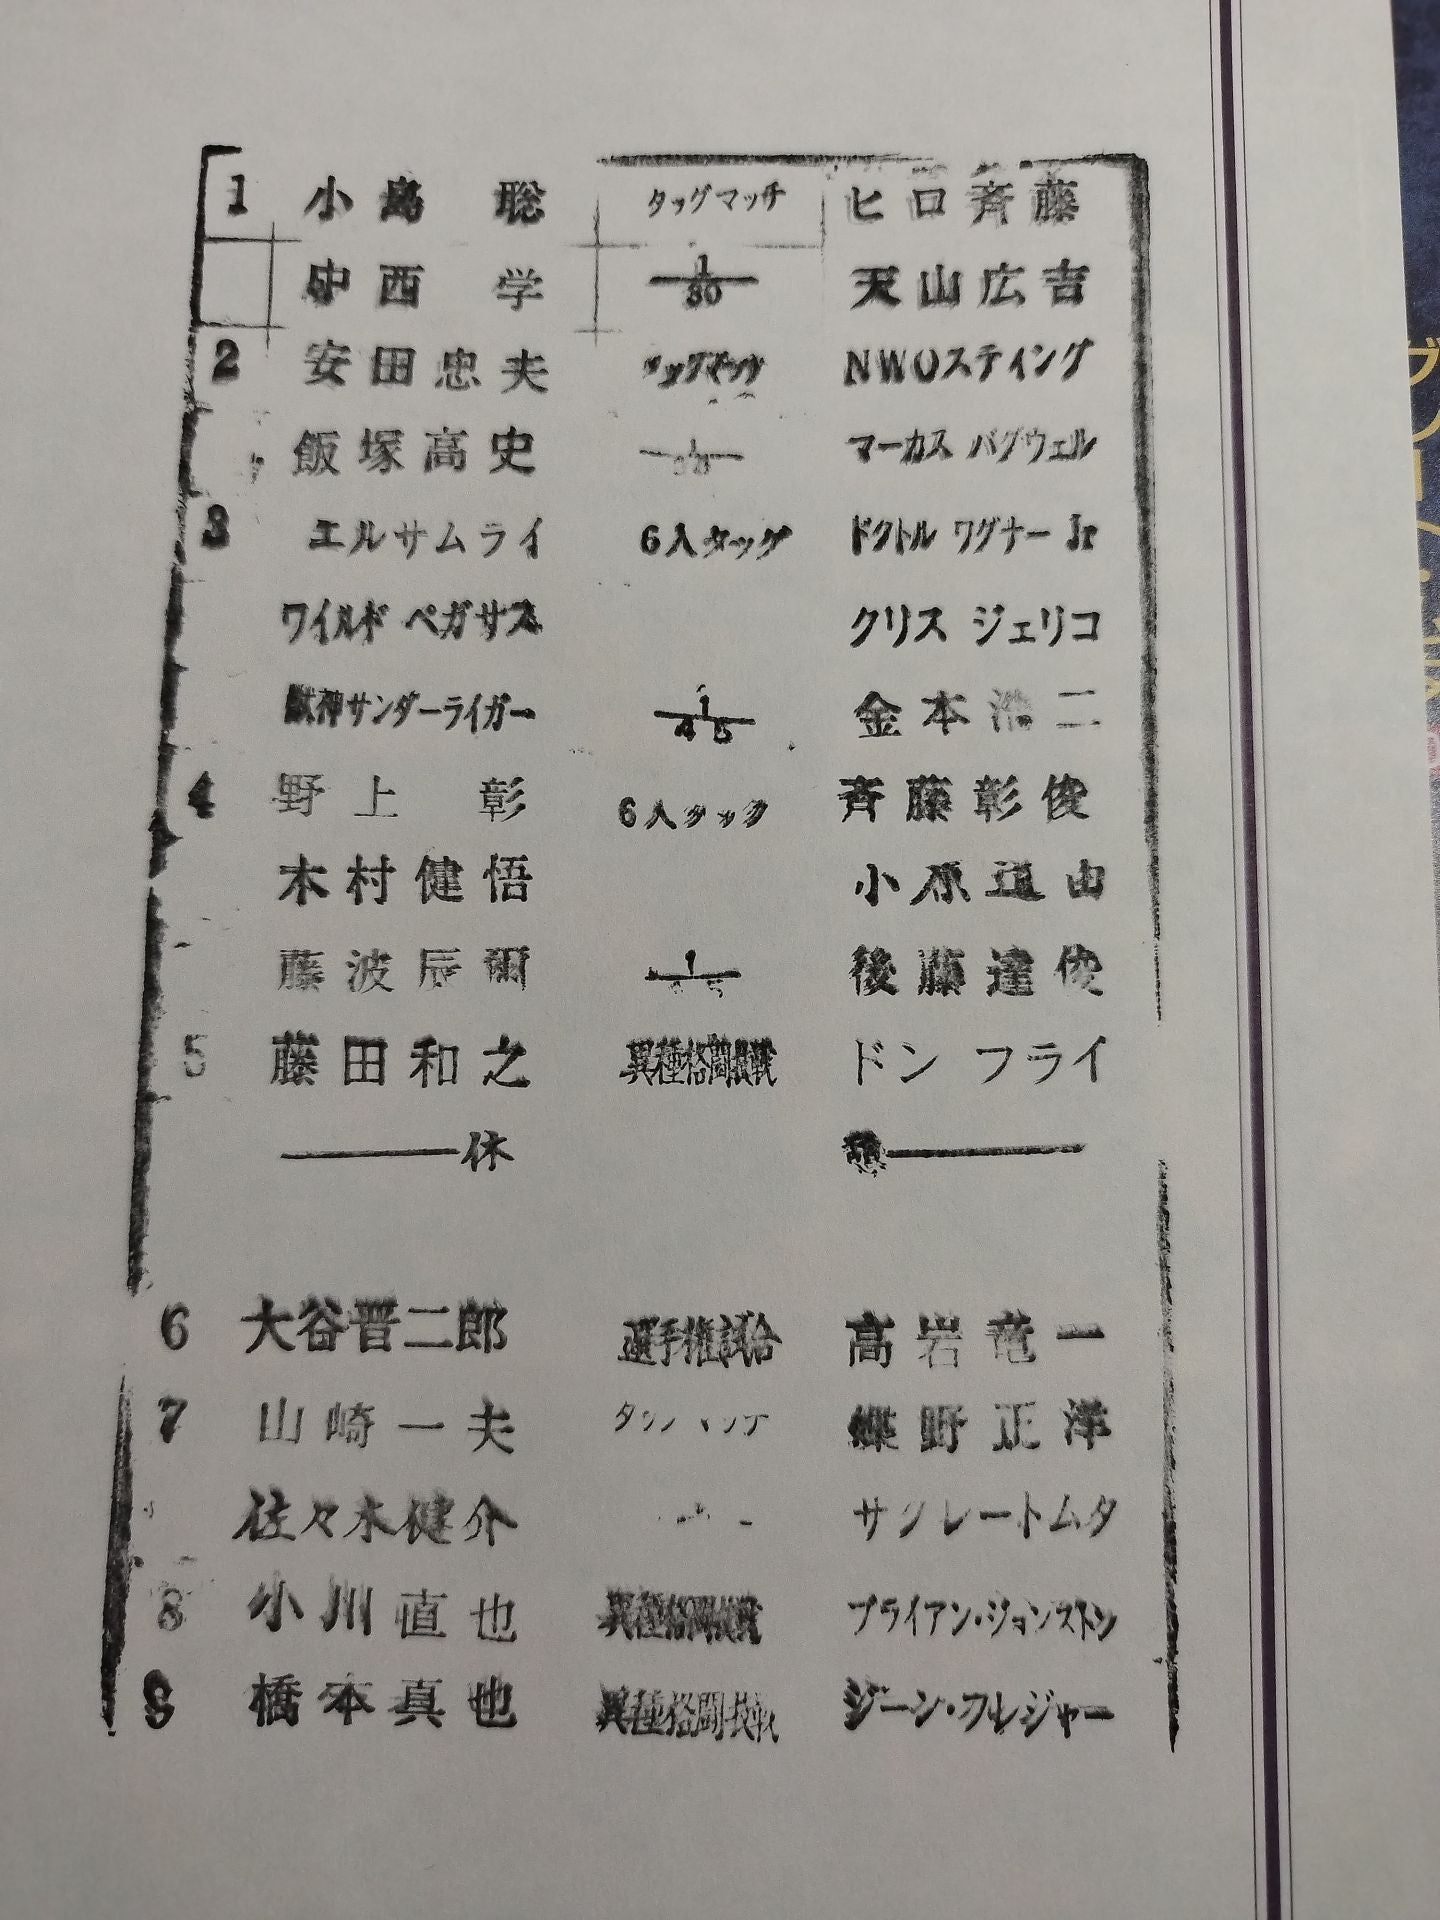 1 小島 聡 タッグマッチ ヒロ斉藤
中西 学 1/30 天山広吉
2 安田忠夫 タッグマッチ NWOスティング
飯塚高史 マーカス バグウェル
3 エルサムライ 6人タッグ ドクトル ワグナー Jr
ワイルド ペガサス クリス ジェリコ
獣神サンダーライガー 1/45 金本浩二
4 野上 彰 6人タッグ 斉藤彰俊
木村健悟 小原道由
藤波辰爾 後藤達俊
5 藤田和之 異種格闘技戦 ドン フライ
休 憩
6 大谷晋二郎 選手権試合 高岩竜一
7 山崎一夫 タッグマッチ 蝶野正洋
佐々木健介 サグレートムタ
8 小川直也 異種格闘技戦 ブライアン・ジョンストン
9 橋本真也 異種格闘技戦 ジーン・フレジャー